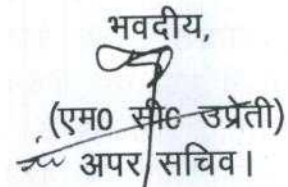 भवदीय,
(एम0 सी0 उप्रेती)
अपर सचिव।